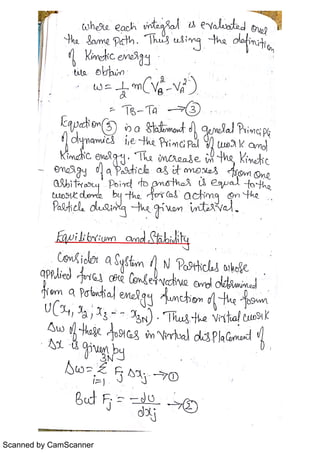 where each integral is evaluated over
the Same path. Thus using the definition
of Kinetic energy.
we obtain
w = 1/2 m(V_B² - V_A²)
= T_B - T_A → ③
Equation ③ is a Statement of general Principle
of dynamics i.e the Principal of work and
Kinetic energy. The increase in the Kinetic
energy of a Particle as it moves from one
arbitrary Point to another is equal to the
work done by the forces acting on the
Particle during the given interval.
Equilibrium and Stability
Consider a System of N Particles whose
applied forces are Conservative and determined
from a Potential energy function of the form
U(x₁, x₂, x₃ -- x₃N). Thus the virtual work
Δw of these forces in virtual displacement of
Δx is given by
Δw = 3N Σ i=1 Fj Δxj → ①
But Fj = -dU/dxj → ②
Scanned by CamScanner